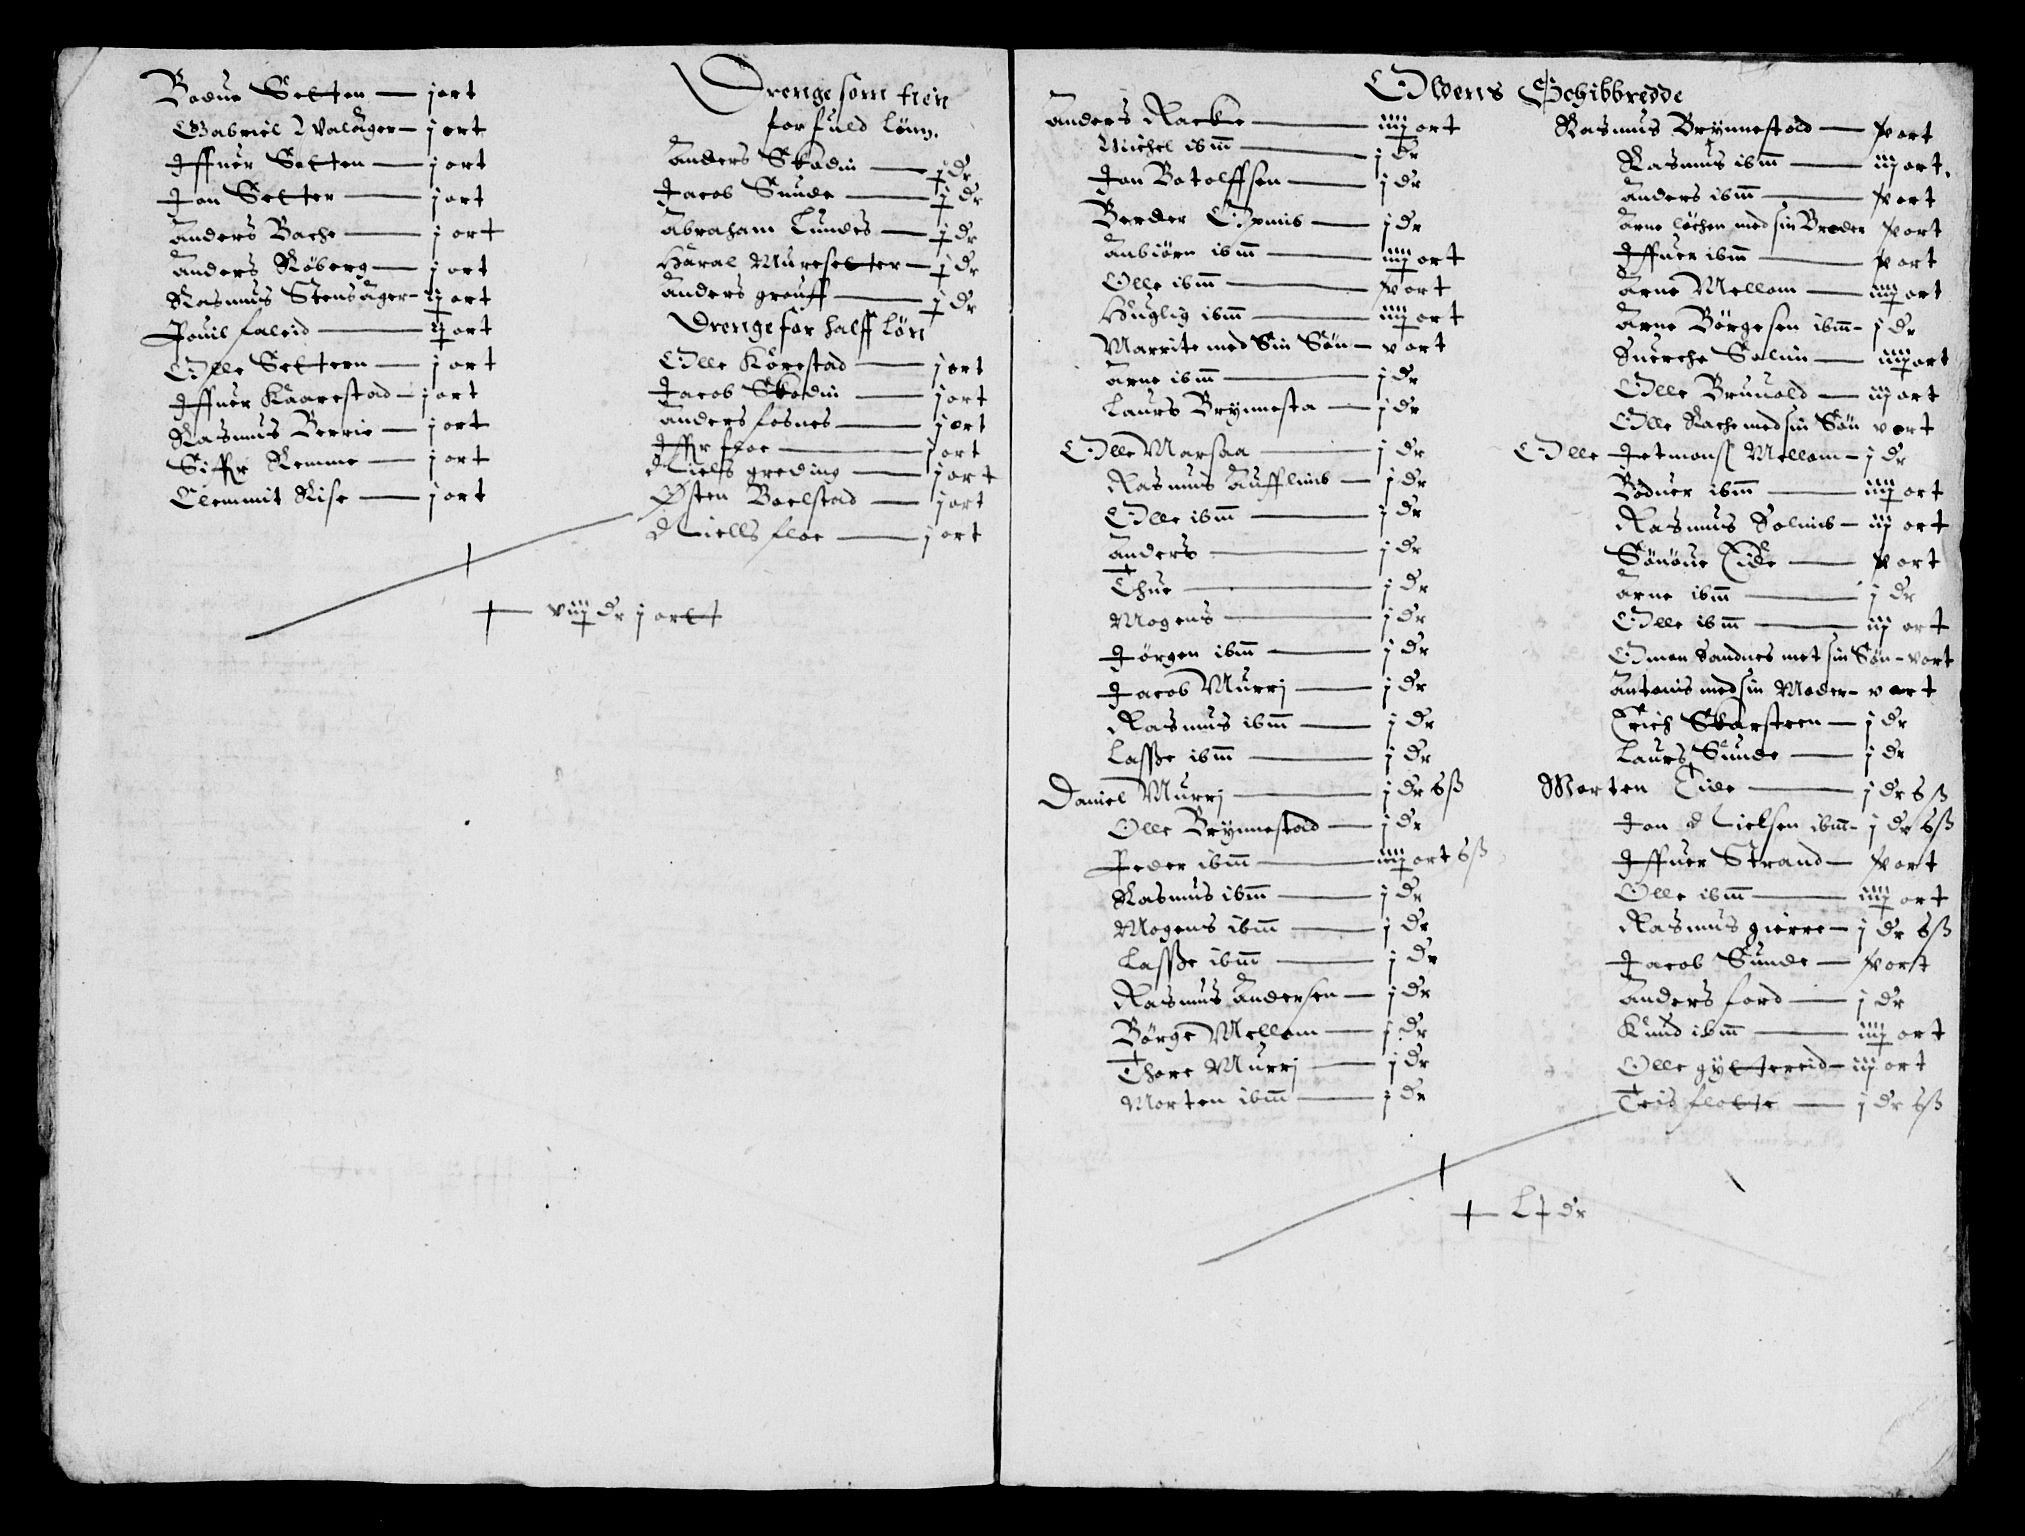 Bodue Setten — j ort
Gabriel Hvalåger — j ort
Iffuer Setten — j ort
Jon Setter — j ort
Anders Bache — j ort
Anders Röberg — j ort
Rasmus Stensåger — ij ort
Pouil faleid — ij ort
Olle Settern — j ort
Iffuer Kaarestad — j ort
Rasmus Berrie — j ort
Siffr Remme — j ort
Clemmit Rise — j ort
Drenge som tien
for fuld lönn.
Anders Skodin — j dr
Jacob Sunde — j dr
Abraham Lundes — j dr
Haral Mureselter — j dr
Anders grouff — j dr
Drenge for halff lön
Olle Körestad — j ort
Jacob Skodin — j ort
Anders fosnes — j ort
Iffr floe — j ort
Niels greding — j ort
Østen Boelstad — j ort
Niells floe — j ort
viij dr j ortt
Owens Schibbredde
Anders Racke — iiij ort
Michel ibm — j dr
Jon Botolffsen — j dr
Berder Opnis — j dr
Anbiörn ibm — iiij ort
Olle ibm — v ort
Huglig ibm — iiij ort
Marrite med Sin Sön — v ort
Arne ibm — j dr
Laurs Brynnesta — j dr
Olle Marsaa — j dr
Rasmus Aufflims — j dr
Olle ibm — j dr
Anders — j dr
Thue — j dr
Mogens — j dr
Jörgen ibm — j dr
Jacob Murrj — j dr
Rasmus ibm — j dr
Lasse ibm — j dr
Daniel Murrj — j dr 6 ß
Olle Brynnestad — j dr
Peder ibm — iiij ort 6 ß
Rasmus ibm — j dr
Mogens ibm — j dr
Lasse ibm — j dr
Rasmus Andersen — j dr
Börge Mellom — j dr
Thore Murrj — j dr
Morten ibm — j dr
Rasmus Brynnestad — v ort
Rasmus ibm — iij ort.
Anders ibm — v ort
Arne löchen med sin Broder v ort
Iffuer ibm — v ort
Arne Mellom — iiij ort
Arne Börgesen ibm — j dr
Suerche Solim — iiij ort
Olle Bruuold — iij ort
Olle Rache med sin Sön v ort
Olle Jetmonß Mellom — j dr
Boduer ibm — iiij ort
Rasmus Solims — iij ort
Sönöue Eide — v ort
Arne ibm — j dr
Olle ibm — iij ort
Omon Sandnes met sin Sön — v ort
Antonis med sin Moder — v ort
Erich Skarsteen — j dr
Laurs Sunde — j dr
Morten Eide — j dr 6 ß
Jon Nielsen ibm — j dr 6 ß
Iffuer Strand — v ort
Olle ibm — iiij ort
Rasmus gierre — j dr 6 ß
Jacob Sunde — v ort
Anders ford — j dr
Knud ibm — iiij ort
Olle gyltereid — iij ort
Tris flotte — j dr 6 ß
Lj dr